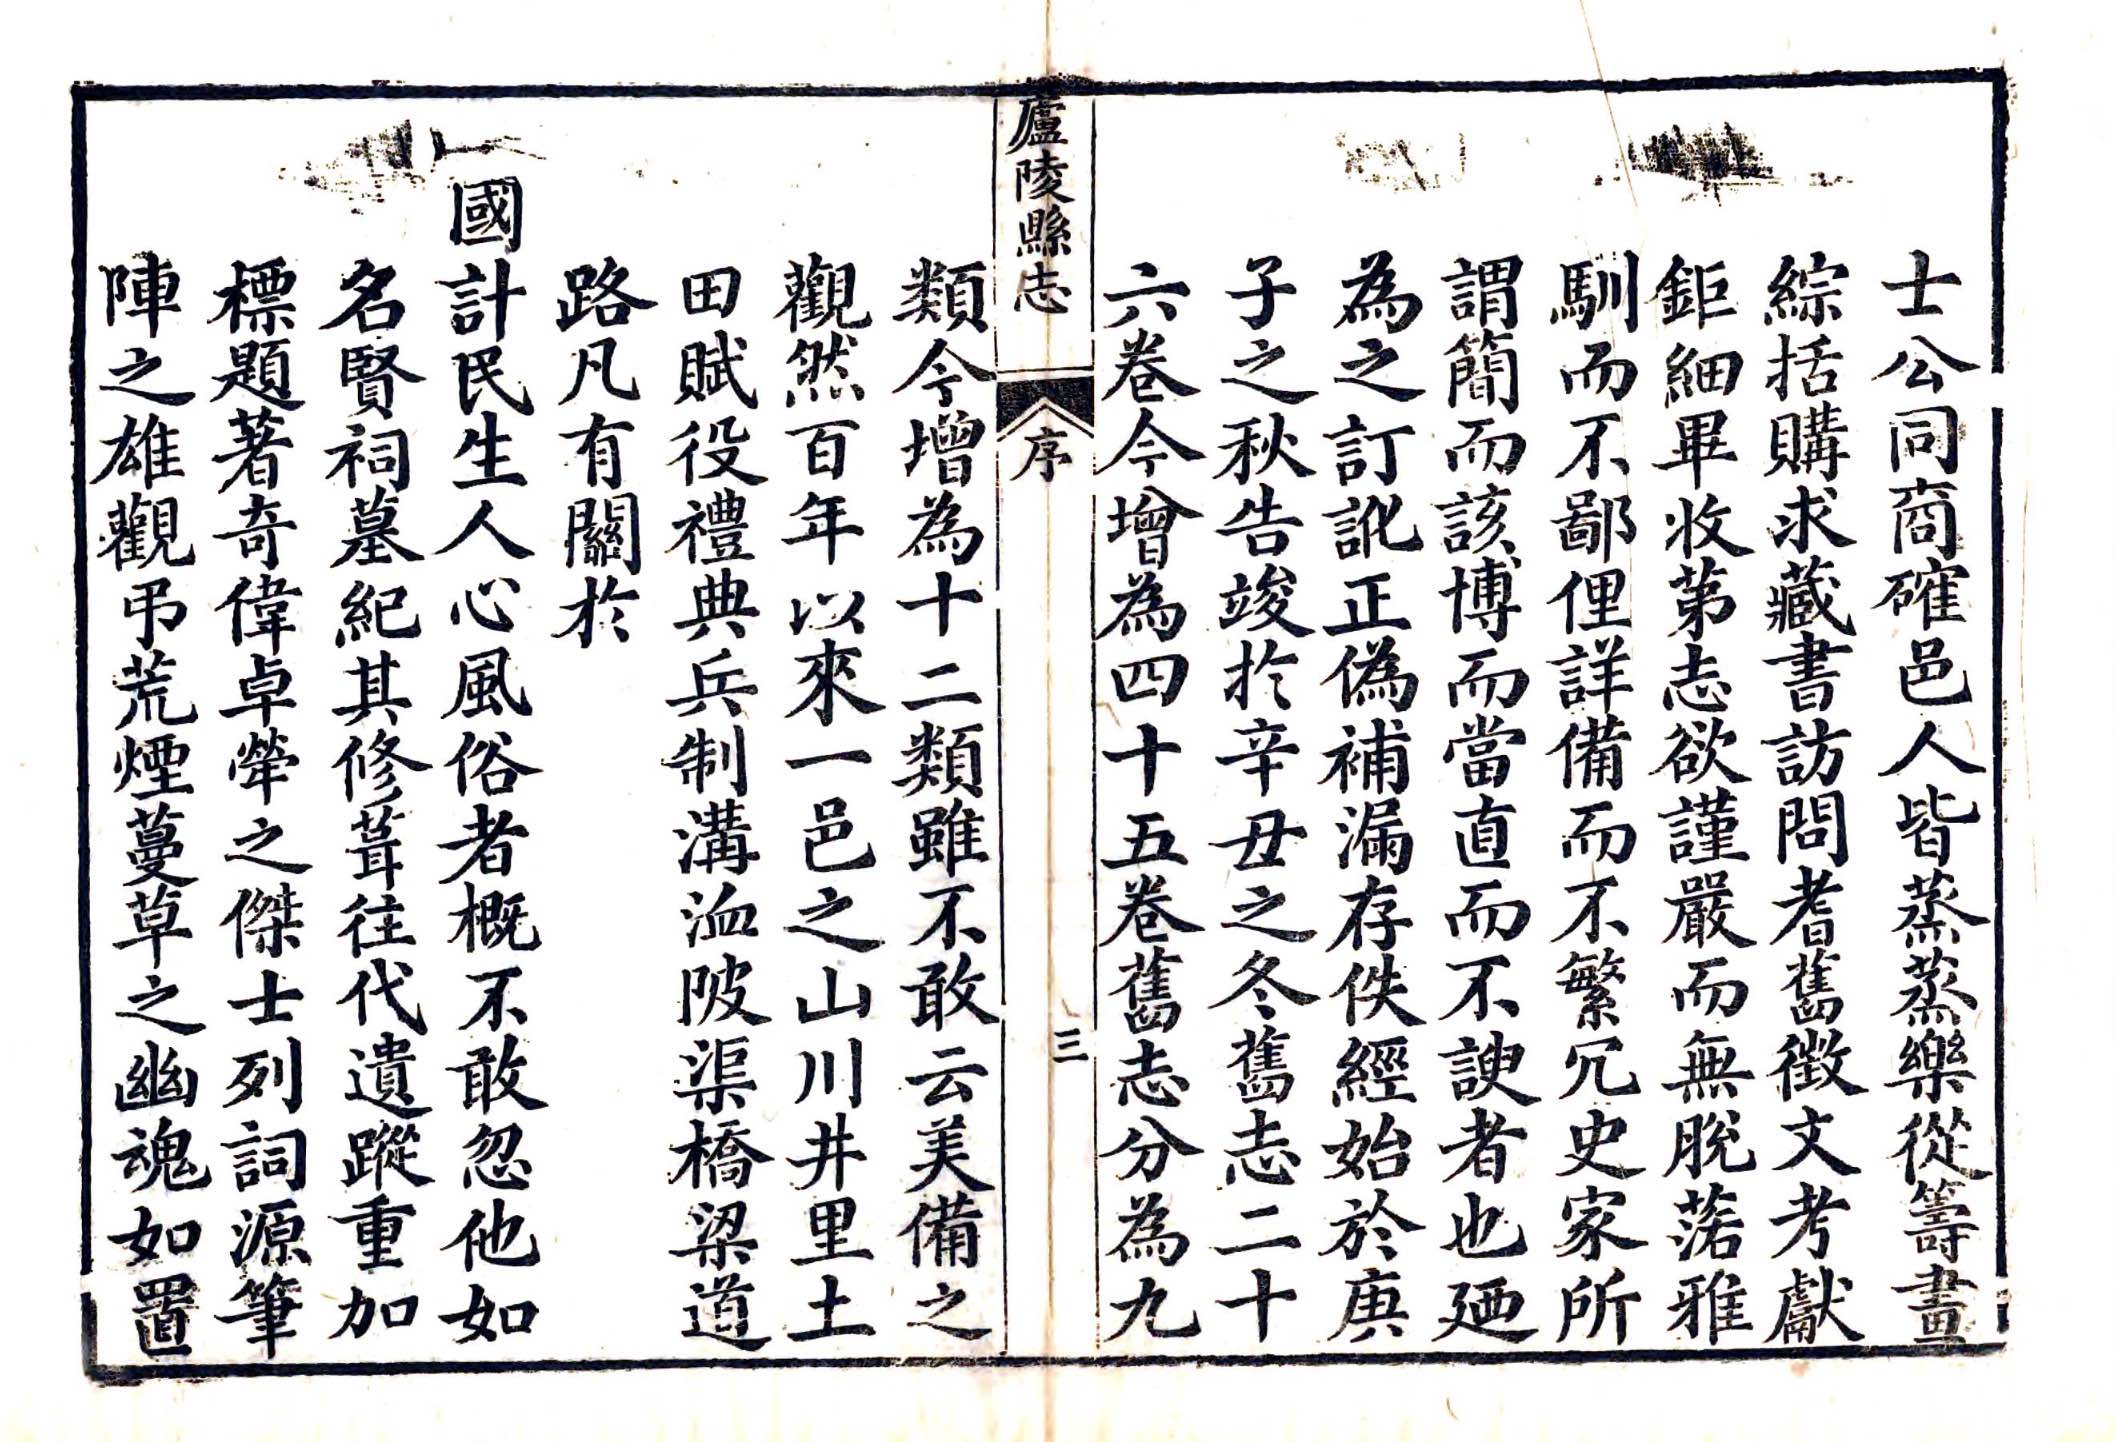 士公同商確邑人皆蒸蒸樂從籌畫
綜括購求藏書訪問耆舊徵文考獻
鉅細畢收第志欲謹嚴而無脫落雅
馴而不鄙俚詳備而不繁冗史家所
謂簡而該博而當直而不諛者也廼
為之訂訛正偽補漏存佚經始於庚
子之秋告竣扵辛丑之冬舊志二十
六卷今增為四十五卷舊志分為九
廬陵縣志
序
三
類今增為十二類雖不敢云美備之
觀然百年以來一邑之山川井里土
田賦役禮典兵制溝洫陂渠橋梁道
路凡有關扵
國計民生人心風俗者概不敢忽他如
名賢祠墓紀其修葺往代遺蹤重加
標題著奇偉卓犖之傑士列詞源筆
陣之雄觀弔荒煙蔓草之幽魂如置